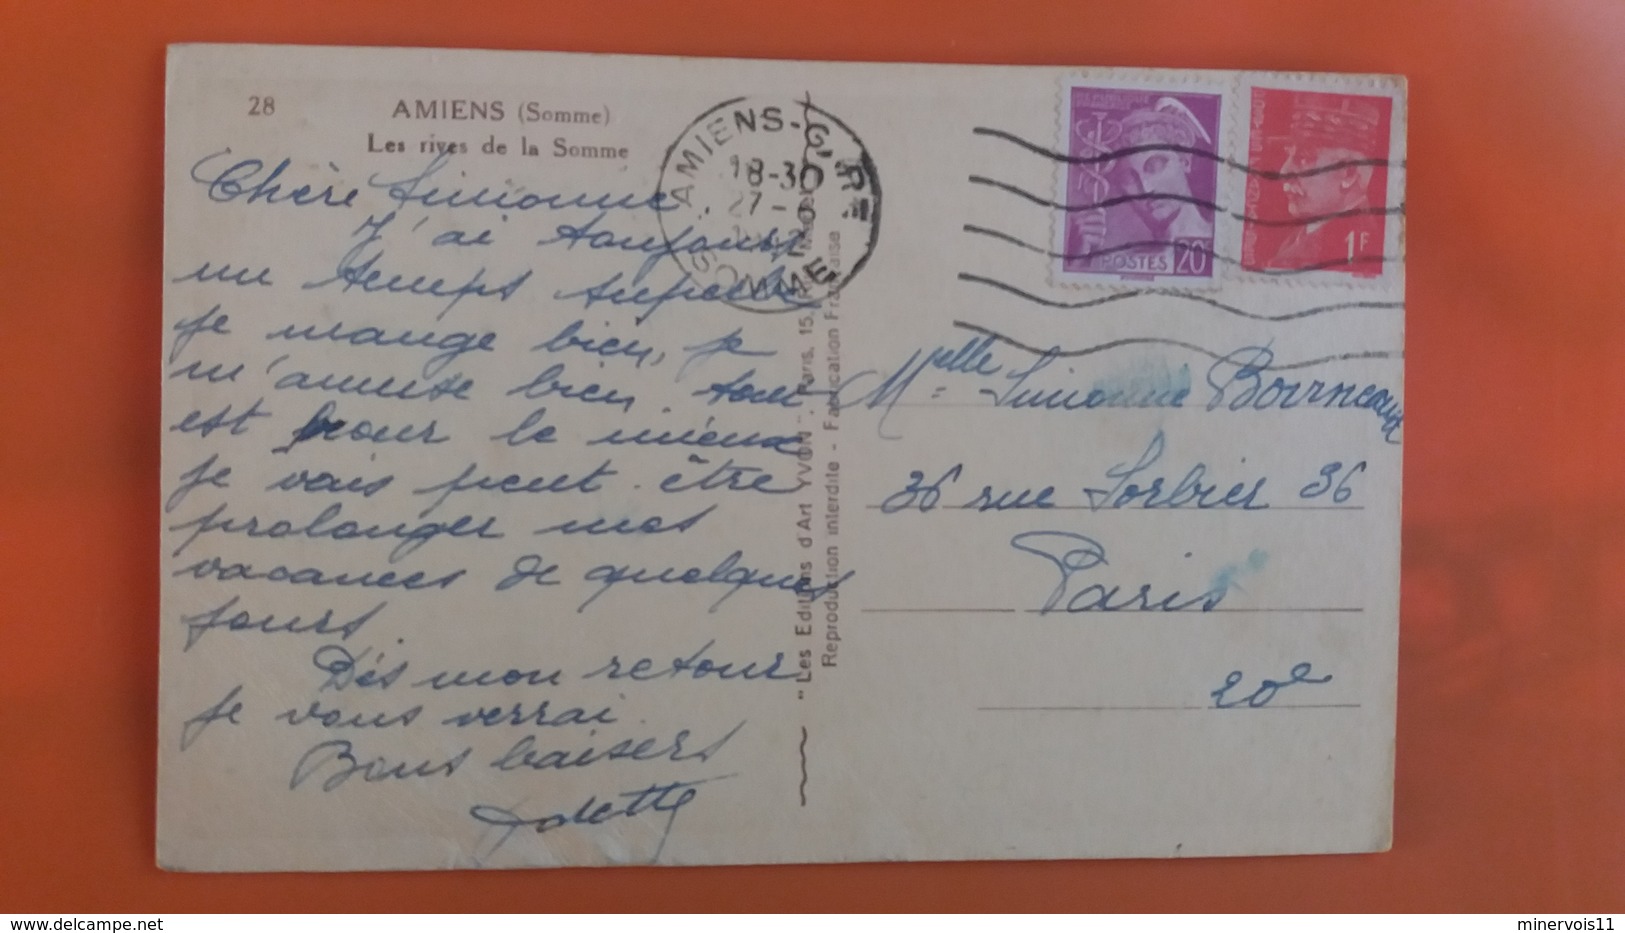 28
AMIENS (Somme)
Les rives de la Somme
Chère Simonne
J'ai toujours
un temps superbe
je mange bien, je
m'amuse bien. tout
est pour le mieux
je vais peut-être
prolonger mes
vacances de quelques
jours.
Dès mon retour
je vous verrai.
Bons baisers
Odette
AMIENS-GARE
18-30
27-
SOMME
"Les Editions d'Art YVON", Paris, 15,
Reproduction interdite - Fabrication Française
POSTES 20c
1F
Melle Simonne Bourneaux
36 rue Sorbier 36
Paris
20e
delcampe.net
minervois11